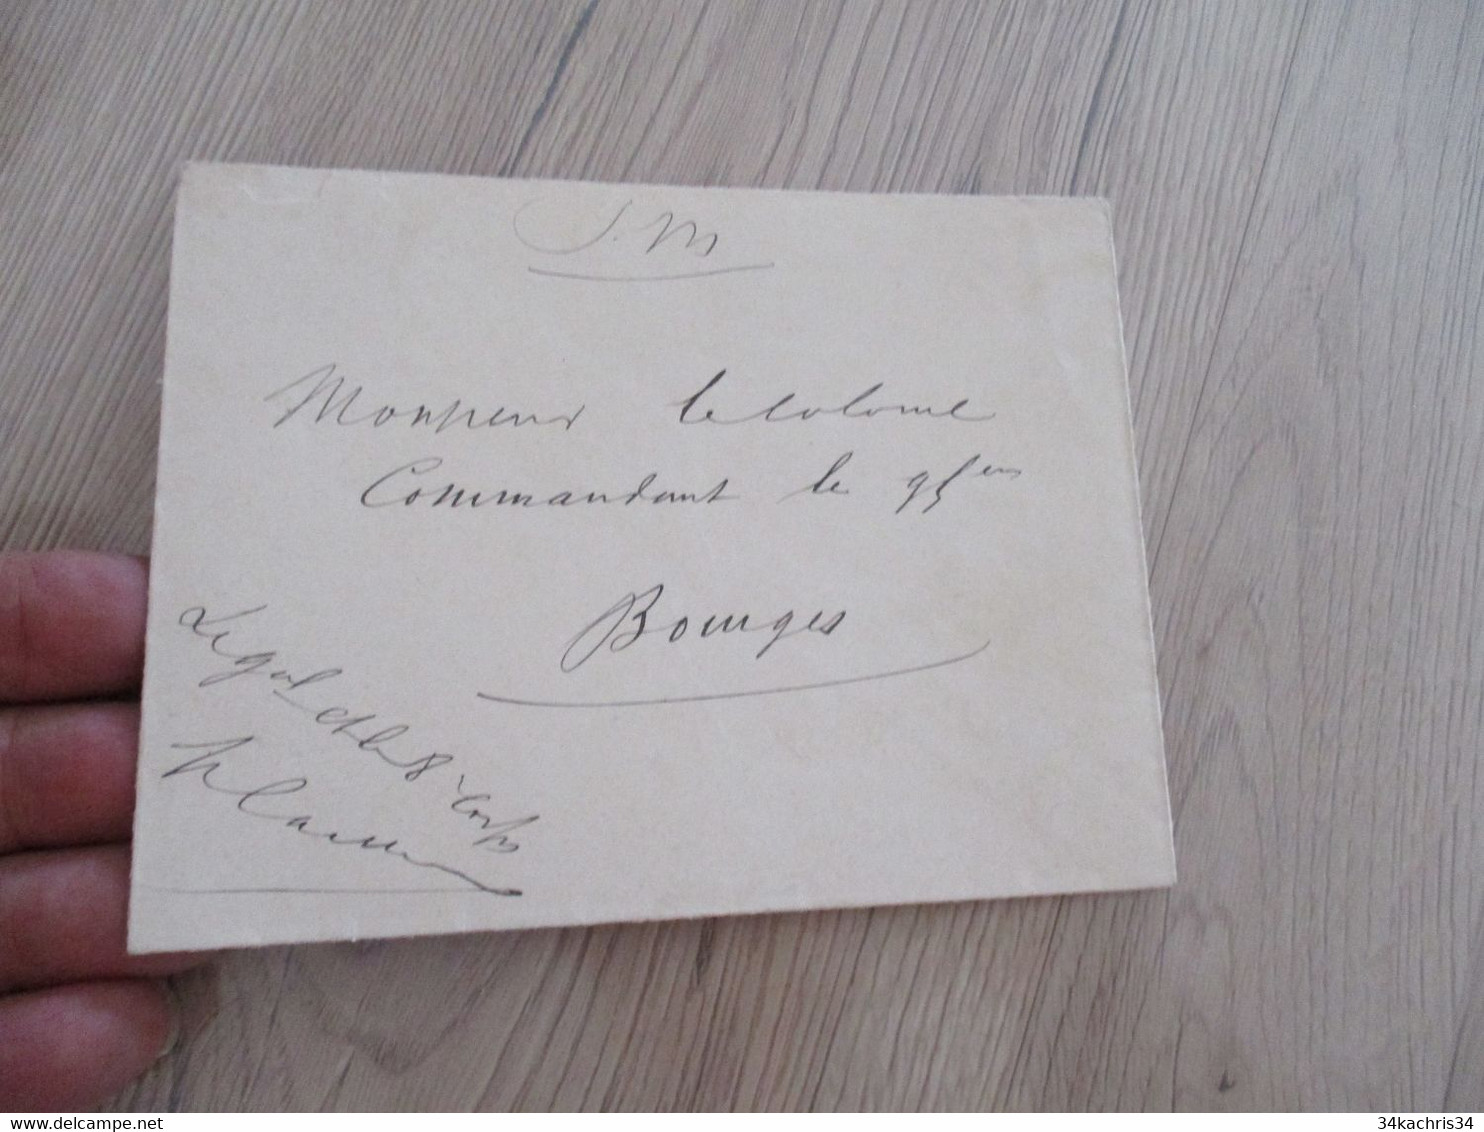 S. M
Monsieur le colonel
Commandant le 95em
Bourges
Le gal
8e corps
delcampe.net
34kachris34